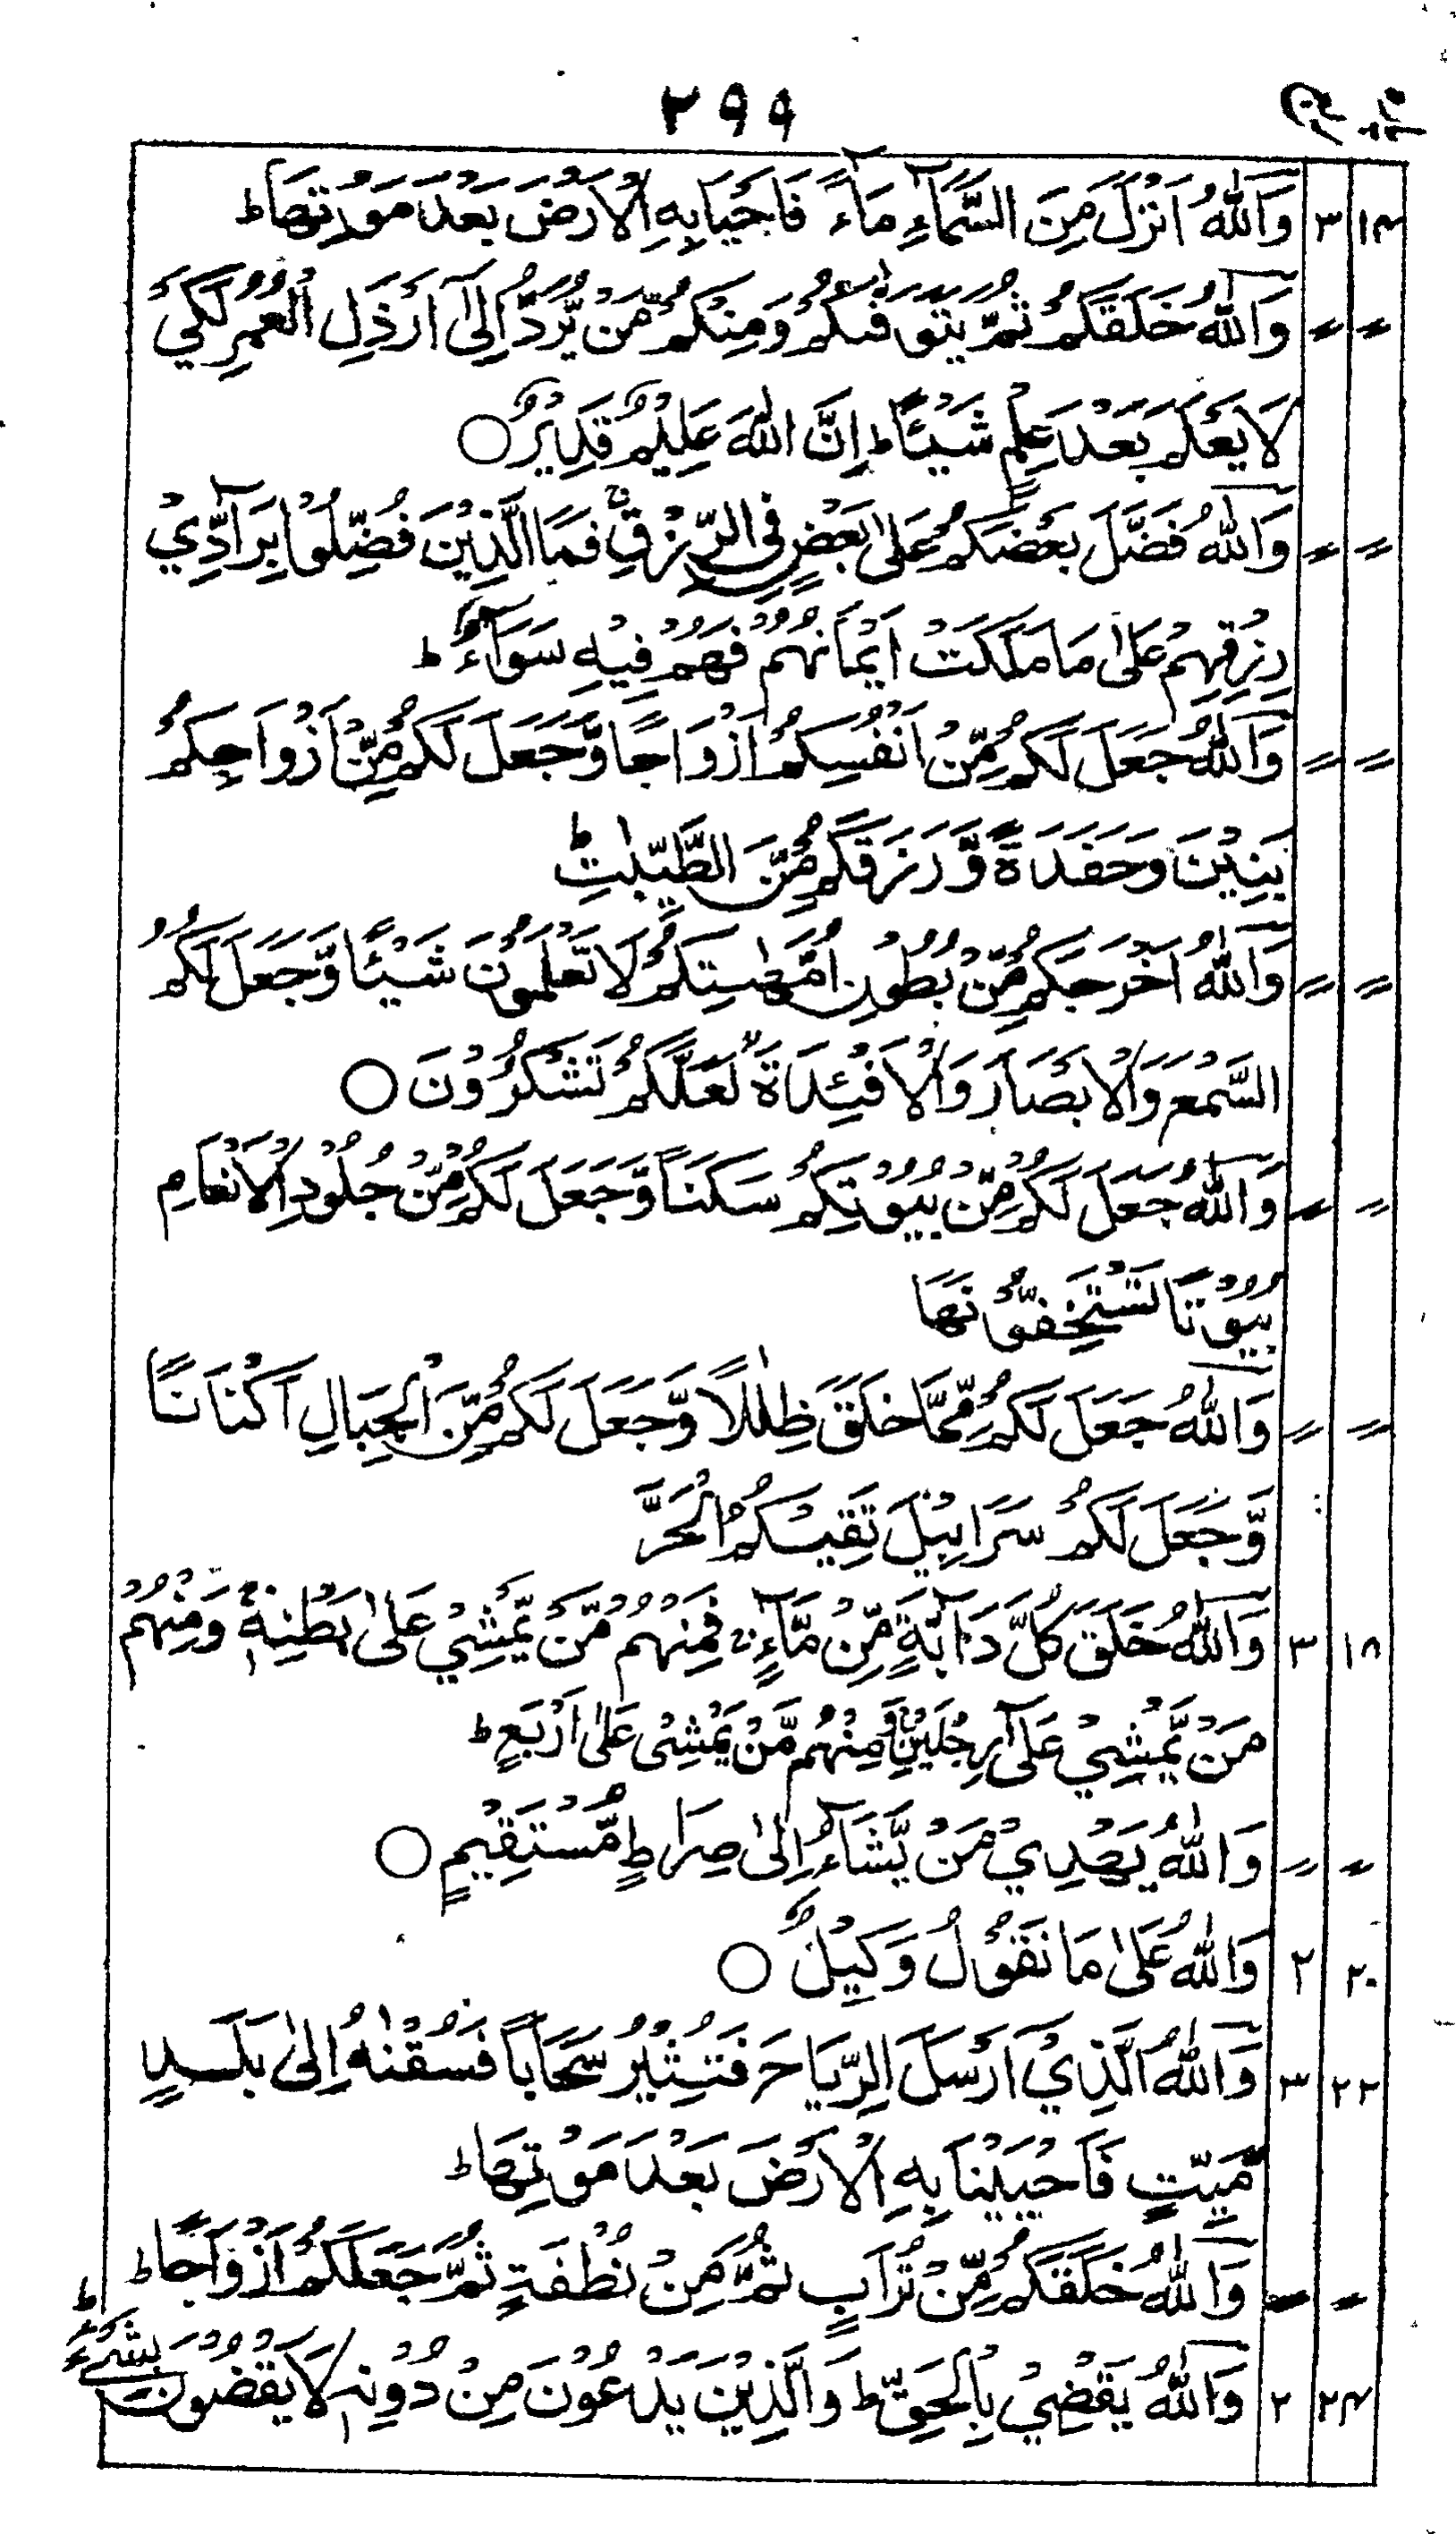 ۲۹۹
۱۴ ۳ وَاللّٰهُ اَنْزَلَ مِنَ السَّمَآءِ مَآءً فَاَحْيَا بِهِ الْاَرْضَ بَعْدَ مَوْتِهَا ؕ
〃 〃 وَاللّٰهُ خَلَقَكُمْ ثُمَّ يَتَوَفّٰىكُمْ وَمِنْكُمْ مَّنْ يُّرَدُّ اِلٰٓى اَرْذَلِ الْعُمُرِ لِكَيْ
لَا يَعْلَمَ بَعْدَ عِلْمٍ شَيْـًٔا ؕ اِنَّ اللّٰهَ عَلِيْمٌ قَدِيْرٌ ○
〃 〃 وَاللّٰهُ فَضَّلَ بَعْضَكُمْ عَلٰى بَعْضٍ فِي الرِّزْقِ ۚ فَمَا الَّذِيْنَ فُضِّلُوْا بِرَآدِّيْ
رِزْقِهِمْ عَلٰى مَا مَلَكَتْ اَيْمَانُهُمْ فَهُمْ فِيْهِ سَوَآءٌ ؕ
〃 〃 وَاللّٰهُ جَعَلَ لَكُمْ مِّنْ اَنْفُسِكُمْ اَزْوَاجًا وَّجَعَلَ لَكُمْ مِّنْ اَزْوَاجِكُمْ
بَنِيْنَ وَحَفَدَةً وَّرَزَقَكُمْ مِّنَ الطَّيِّبٰتِ ؕ
〃 〃 وَاللّٰهُ اَخْرَجَكُمْ مِّنْ بُطُوْنِ اُمَّهٰتِكُمْ لَا تَعْلَمُوْنَ شَيْـًٔا وَّجَعَلَ لَكُمُ
السَّمْعَ وَالْاَبْصَارَ وَالْاَفْـِٕدَةَ ۙ لَعَلَّكُمْ تَشْكُرُوْنَ ○
〃 〃 وَاللّٰهُ جَعَلَ لَكُمْ مِّنْ بُيُوْتِكُمْ سَكَنًا وَّجَعَلَ لَكُمْ مِّنْ جُلُوْدِ الْاَنْعَامِ
بُيُوْتًا تَسْتَخِفُّوْنَهَا
〃 〃 وَاللّٰهُ جَعَلَ لَكُمْ مِّمَّا خَلَقَ ظِلٰلًا وَّجَعَلَ لَكُمْ مِّنَ الْجِبَالِ اَكْنَانًا
وَّجَعَلَ لَكُمْ سَرَابِيْلَ تَقِيْكُمُ الْحَرَّ
۱۸ ۳ وَاللّٰهُ خَلَقَ كُلَّ دَآبَّةٍ مِّنْ مَّآءٍ ۚ فَمِنْهُمْ مَّنْ يَّمْشِيْ عَلٰى بَطْنِهٖ ۚ وَمِنْهُمْ
مَنْ يَّمْشِيْ عَلٰى رِجْلَيْنِ ۚ وَمِنْهُمْ مَّنْ يَّمْشِيْ عَلٰٓى اَرْبَعٍ ؕ
〃 〃 وَاللّٰهُ يَهْدِيْ مَنْ يَّشَآءُ اِلٰى صِرَاطٍ مُّسْتَقِيْمٍ ○
۲۰ ۲ وَاللّٰهُ عَلٰى مَا نَقُوْلُ وَكِيْلٌ ○
۲۲ ۳ وَاللّٰهُ الَّذِيْ اَرْسَلَ الرِّيَاحَ فَتُثِيْرُ سَحَابًا فَسُقْنٰهُ اِلٰى بَلَدٍ
مَّيِّتٍ فَاَحْيَيْنَا بِهِ الْاَرْضَ بَعْدَ مَوْتِهَا ؕ
〃 〃 وَاللّٰهُ خَلَقَكُمْ مِّنْ تُرَابٍ ثُمَّ مِنْ نُّطْفَةٍ ثُمَّ جَعَلَكُمْ اَزْوَاجًا ؕ
۲۴ ۲ وَاللّٰهُ يَقْضِيْ بِالْحَقِّ ؕ وَالَّذِيْنَ يَدْعُوْنَ مِنْ دُوْنِهٖ لَا يَقْضُوْنَ بِشَيْءٍ ؕ